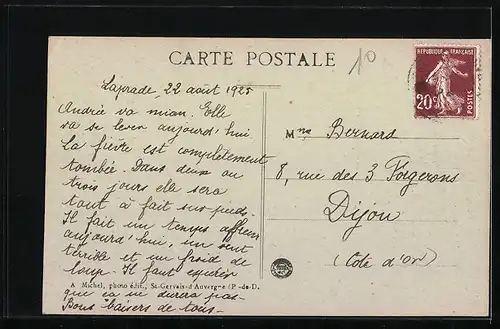 CARTE POSTALE
10
RÉPUBLIQUE FRANÇAISE
20c
POSTES
Laprade 22 août 1925
Andrée va mieux. Elle
va se lever aujourd'hui
La fièvre est complètement
tombée. Dans deux ou
trois jours elle sera
tout à fait sur pieds.
Il fait un temps affreux
aujourd'hui, un vent
terrible et un froid de
loup. Il faut espérer
que ça ne durera pas.
Bons baisers de tous.
Mme Bernard
8, rue des 3 Forgerons
Dijon
(Côte d'Or)
A Michel, photo édit., St-Gervais-d'Auvergne (P.-de-D.